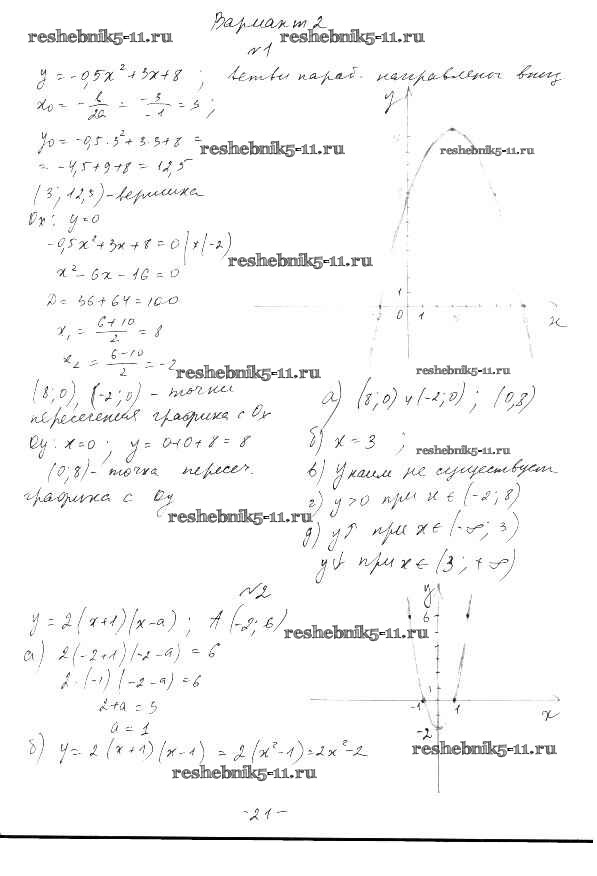 Вариант 2
reshebnik5-11.ru
reshebnik5-11.ru
№1
y = -0,5x² + 3x + 8 ; ветви параб. направлены вниз
x₀ = -b/2a = -3/-1 = 3 ;
y₀ = -0,5·3² + 3·3 + 8 =
= -4,5 + 9 + 8 = 12,5
reshebnik5-11.ru
(3; 12,5) - вершина
Ox: y = 0
-0,5x² + 3x + 8 = 0 | ×(-2)
reshebnik5-11.ru
x² - 6x - 16 = 0
D = 36 + 64 = 100
x₁ = (6+10)/2 = 8
x₂ = (6-10)/2 = -2
reshebnik5-11.ru
(8; 0), (-2; 0) - точки
пересечения графика с Ox
Oy: x = 0 ; y = 0+0+8 = 8
(0; 8) - точка пересеч.
графика с Oy
reshebnik5-11.ru
y
reshebnik5-11.ru
1
-2 0 1 x
reshebnik5-11.ru
а) (8; 0) и (-2; 0) ; (0, 8)
б) x = 3 ;
reshebnik5-11.ru
в) y наим не существует.
г) y > 0 при x ∈ (-2; 8)
д) y↑ при x ∈ (-∞; 3)
y↓ при x ∈ (3; +∞)
№2
y = 2(x+1)(x-a) ; A(-2; 6)
reshebnik5-11.ru
а) 2(-2+1)(-2-a) = 6
2·(-1)(-2-a) = 6
2+a = 3
a = 1
б) y = 2(x+1)(x-1) = 2(x²-1) = 2x²-2
reshebnik5-11.ru
y
6
1
-1 1 x
-2
reshebnik5-11.ru
-21-